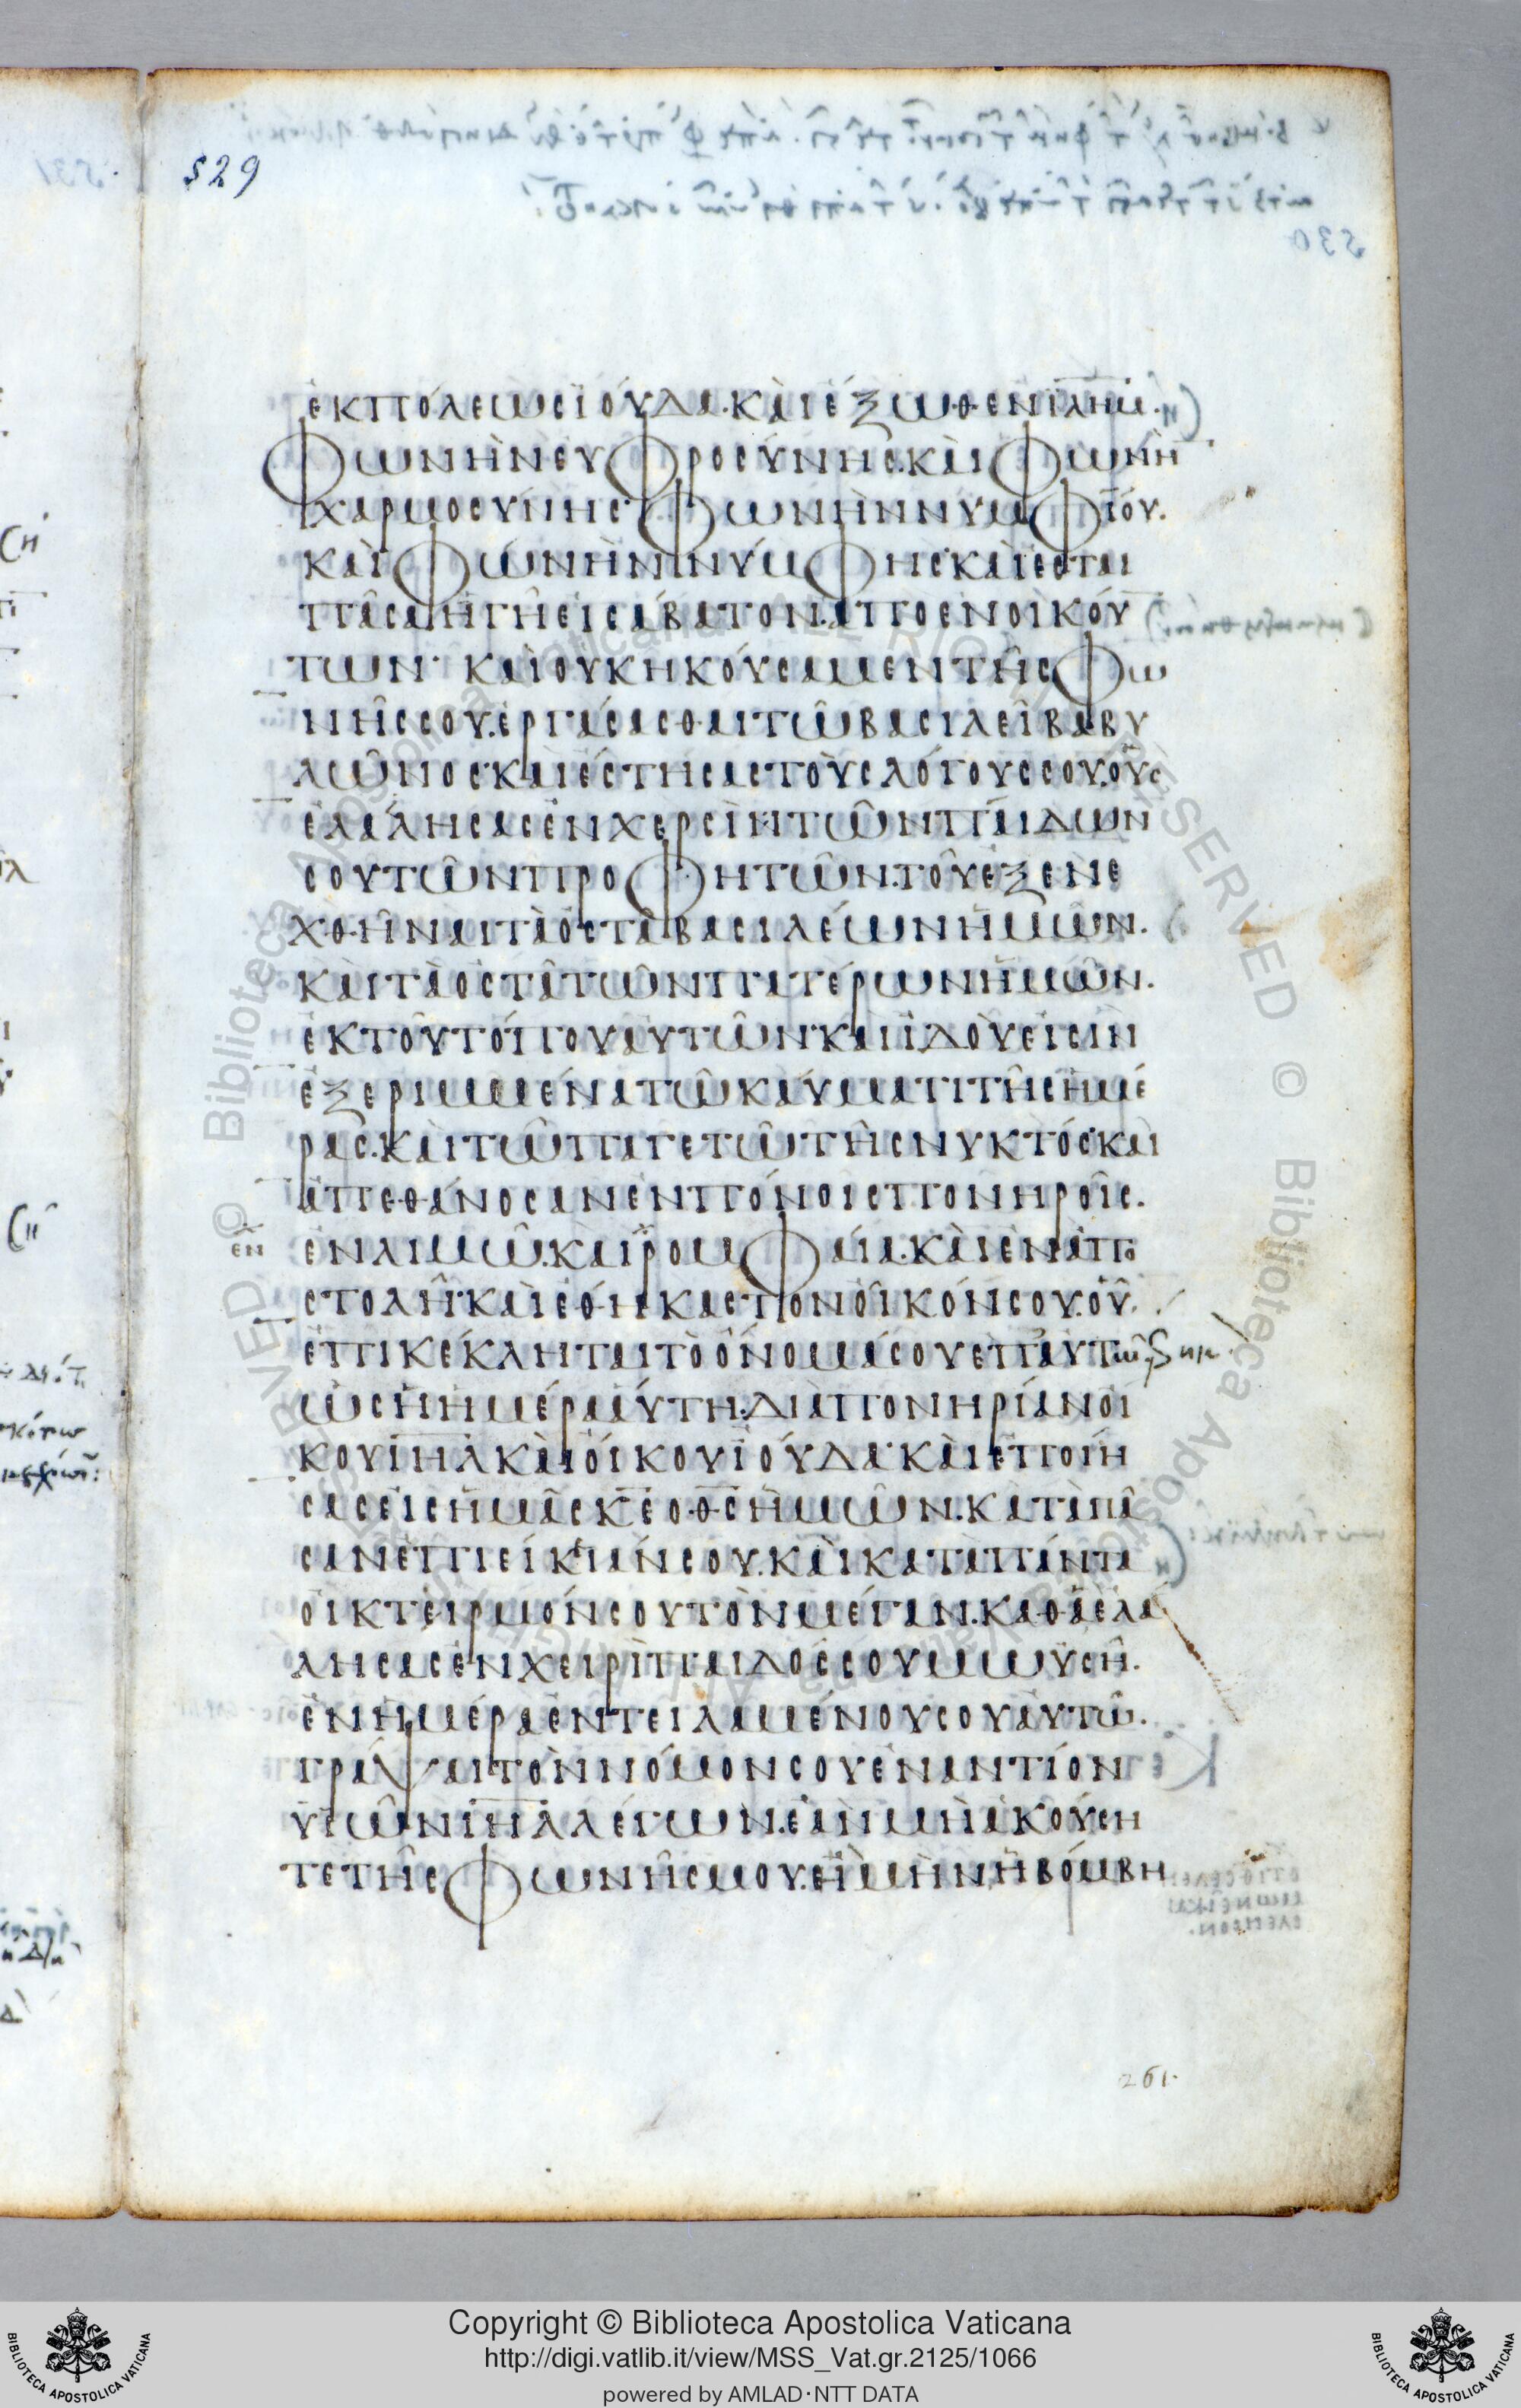 529
ἐκπόλεωσϊούδα·καὶἔξωθενϊλημ·
φωνὴνευφροσύνησ·καὶφωνὴ
χαρμοσύνησ·φωνὴννυμφίου·
καὶφωνὴννύμφησ·καὶεσται
πᾶσαἡγῆεἰσάβατον·ἀποενοικού
των· καὶουκηκούσαμεντῆσφω
νῆσσου·ἐργάσασθαιτῶβασιλεῖβαβυ
λῶνοσ·καὶἔστησαστοὺσλόγουσσου·οὓσ
ἐλάλησασἐνχερσὶντῶνπαίδων
σουτῶνπροφητῶν·τοῦἐξενε
χθῆναιτὰὀστᾶβασιλέωνἡμῶν·
καὶτὰοστᾶτῶνπατέρωνἡμῶν·
ἐκτοῦτόπουαὐτῶν·καὶἰδοὺεἰσὶν
ἐξεριμμένατῶκαύματιτῆσἡμέ
ρασ·καὶτῶπαγετῶτῆσνυκτόσ·καὶ
ἀπεθάνοσανἐνπόνοισπονηροῖσ·
ἐν
ἐνλιμῶ·καὶῥομφαία·καὶἐνἀπο
στολῆ·καὶἔθηκαστὸνοἶκόνσου·οὗ
ἐπικέκληταιτὸὄνομάσουἐπαὐτῶ
ὡσἡἡμέρααύτη·διὰπονηρίανοἴ
κουϊηλκαὶοἴκουϊούδα·καὶἐποίη
σασεἰσἡμᾶσκεοθσἡμῶν·κατὰπᾶ
σανἐπιείκειάνσου·καὶκατὰπάντα
οἰκτειρμόνσουτὸνμέγαν·καθὰἐλά
λησασἐνχειρὶπαιδόσσουμωϋσῆ·
ἐνἡμέραἐντειλαμένουσουαὐτῶ·
γράψαιτὸννόμονσουἐναντίον
υἱῶνϊηλλέγων·ἐὰνμὴἀκούση
τετῆσφωνῆσμου·εἰμὴνἡβόμβη
261·
Copyright © Biblioteca Apostolica Vaticana
http://digi.vatlib.it/view/MSS_Vat.gr.2125/1066
powered by AMLAD·NTT DATA